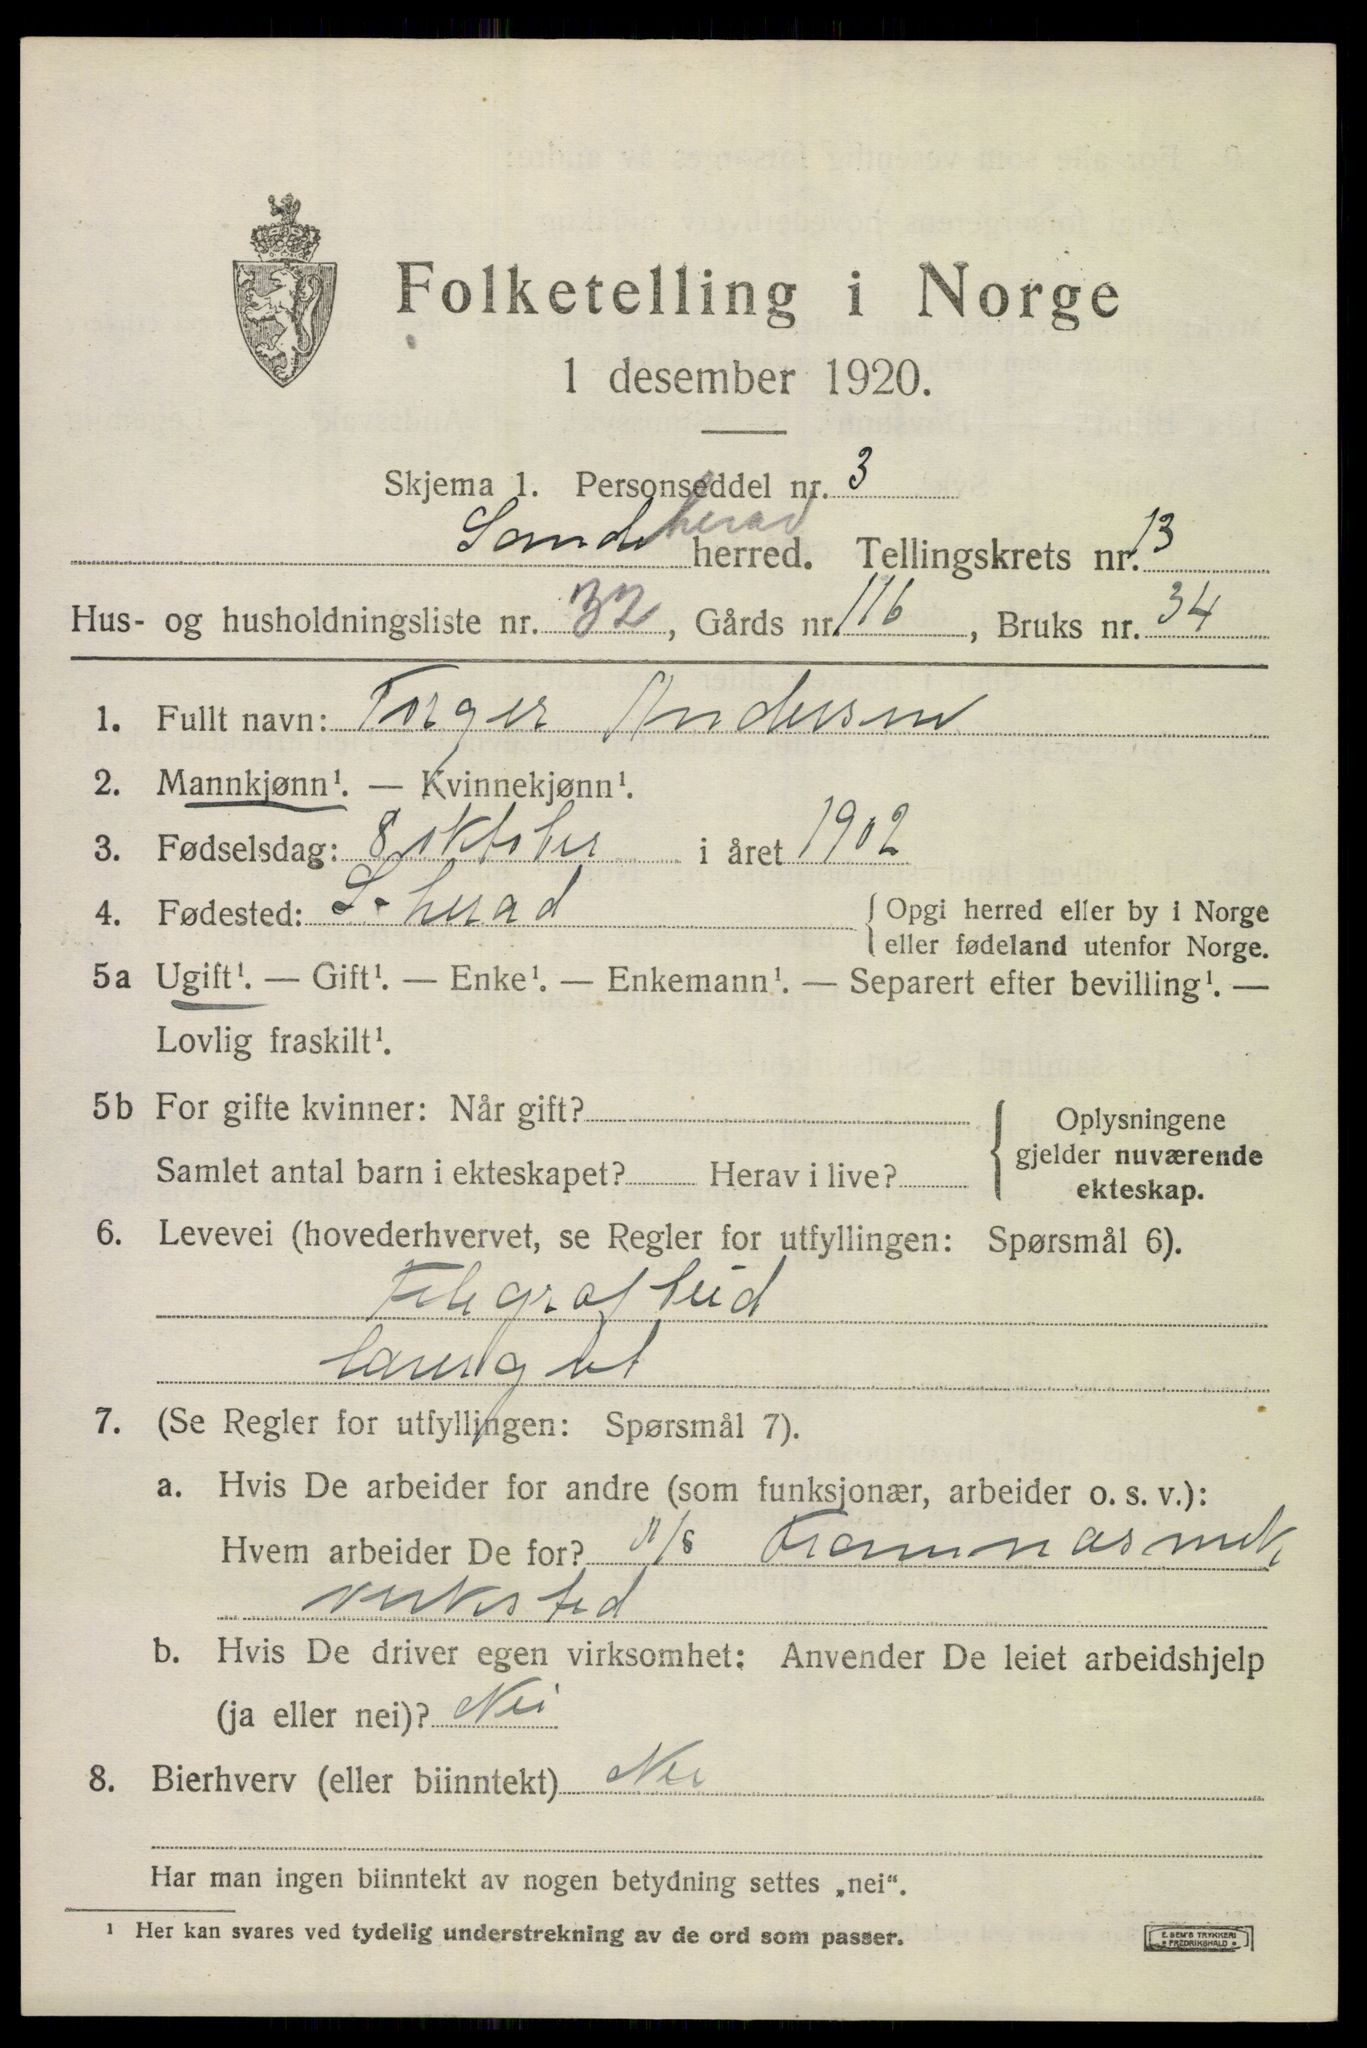 Folketelling i Norge
1 desember 1920.
Skjema 1. Personseddel nr. 3
Sandeherad herred. Tellingskrets nr. 13
Hus- og husholdningsliste nr. 32, Gårds nr. 116, Bruks nr. 34
1. Fullt navn: Torger Andersen
2. Mannkjønn¹. — Kvinnekjønn¹.
3. Fødselsdag: 8 oktober i året 1902
4. Fødested: S. herad { Opgi herred eller by i Norge
eller fødeland utenfor Norge.
5a Ugift¹. — Gift¹. — Enke¹. — Enkemann¹. — Separert efter bevilling¹. —
Lovlig fraskilt¹.
5b For gifte kvinner: Når gift? { Oplysningene
gjelder nuværende
Samlet antal barn i ekteskapet? Herav i live?
ekteskap.
6. Levevei (hovederhvervet, se Regler for utfyllingen: Spørsmål 6).
7. (Se Regler for utfyllingen: Spørsmål 7).
a. Hvis De arbeider for andre (som funksjonær, arbeider o. s. v.):
Hvem arbeider De for? A/S Framnæs mek.
verksted
b. Hvis De driver egen virksomhet: Anvender De leiet arbeidshjelp
(ja eller nei)? Nei
8. Bierhverv (eller biinntekt) Nei
Har man ingen biinntekt av nogen betydning settes „nei“.
¹ Her kan svares ved tydelig understrekning av de ord som passer.
E. SEM'S TRYKKERI
• FREDRIKSHALD •